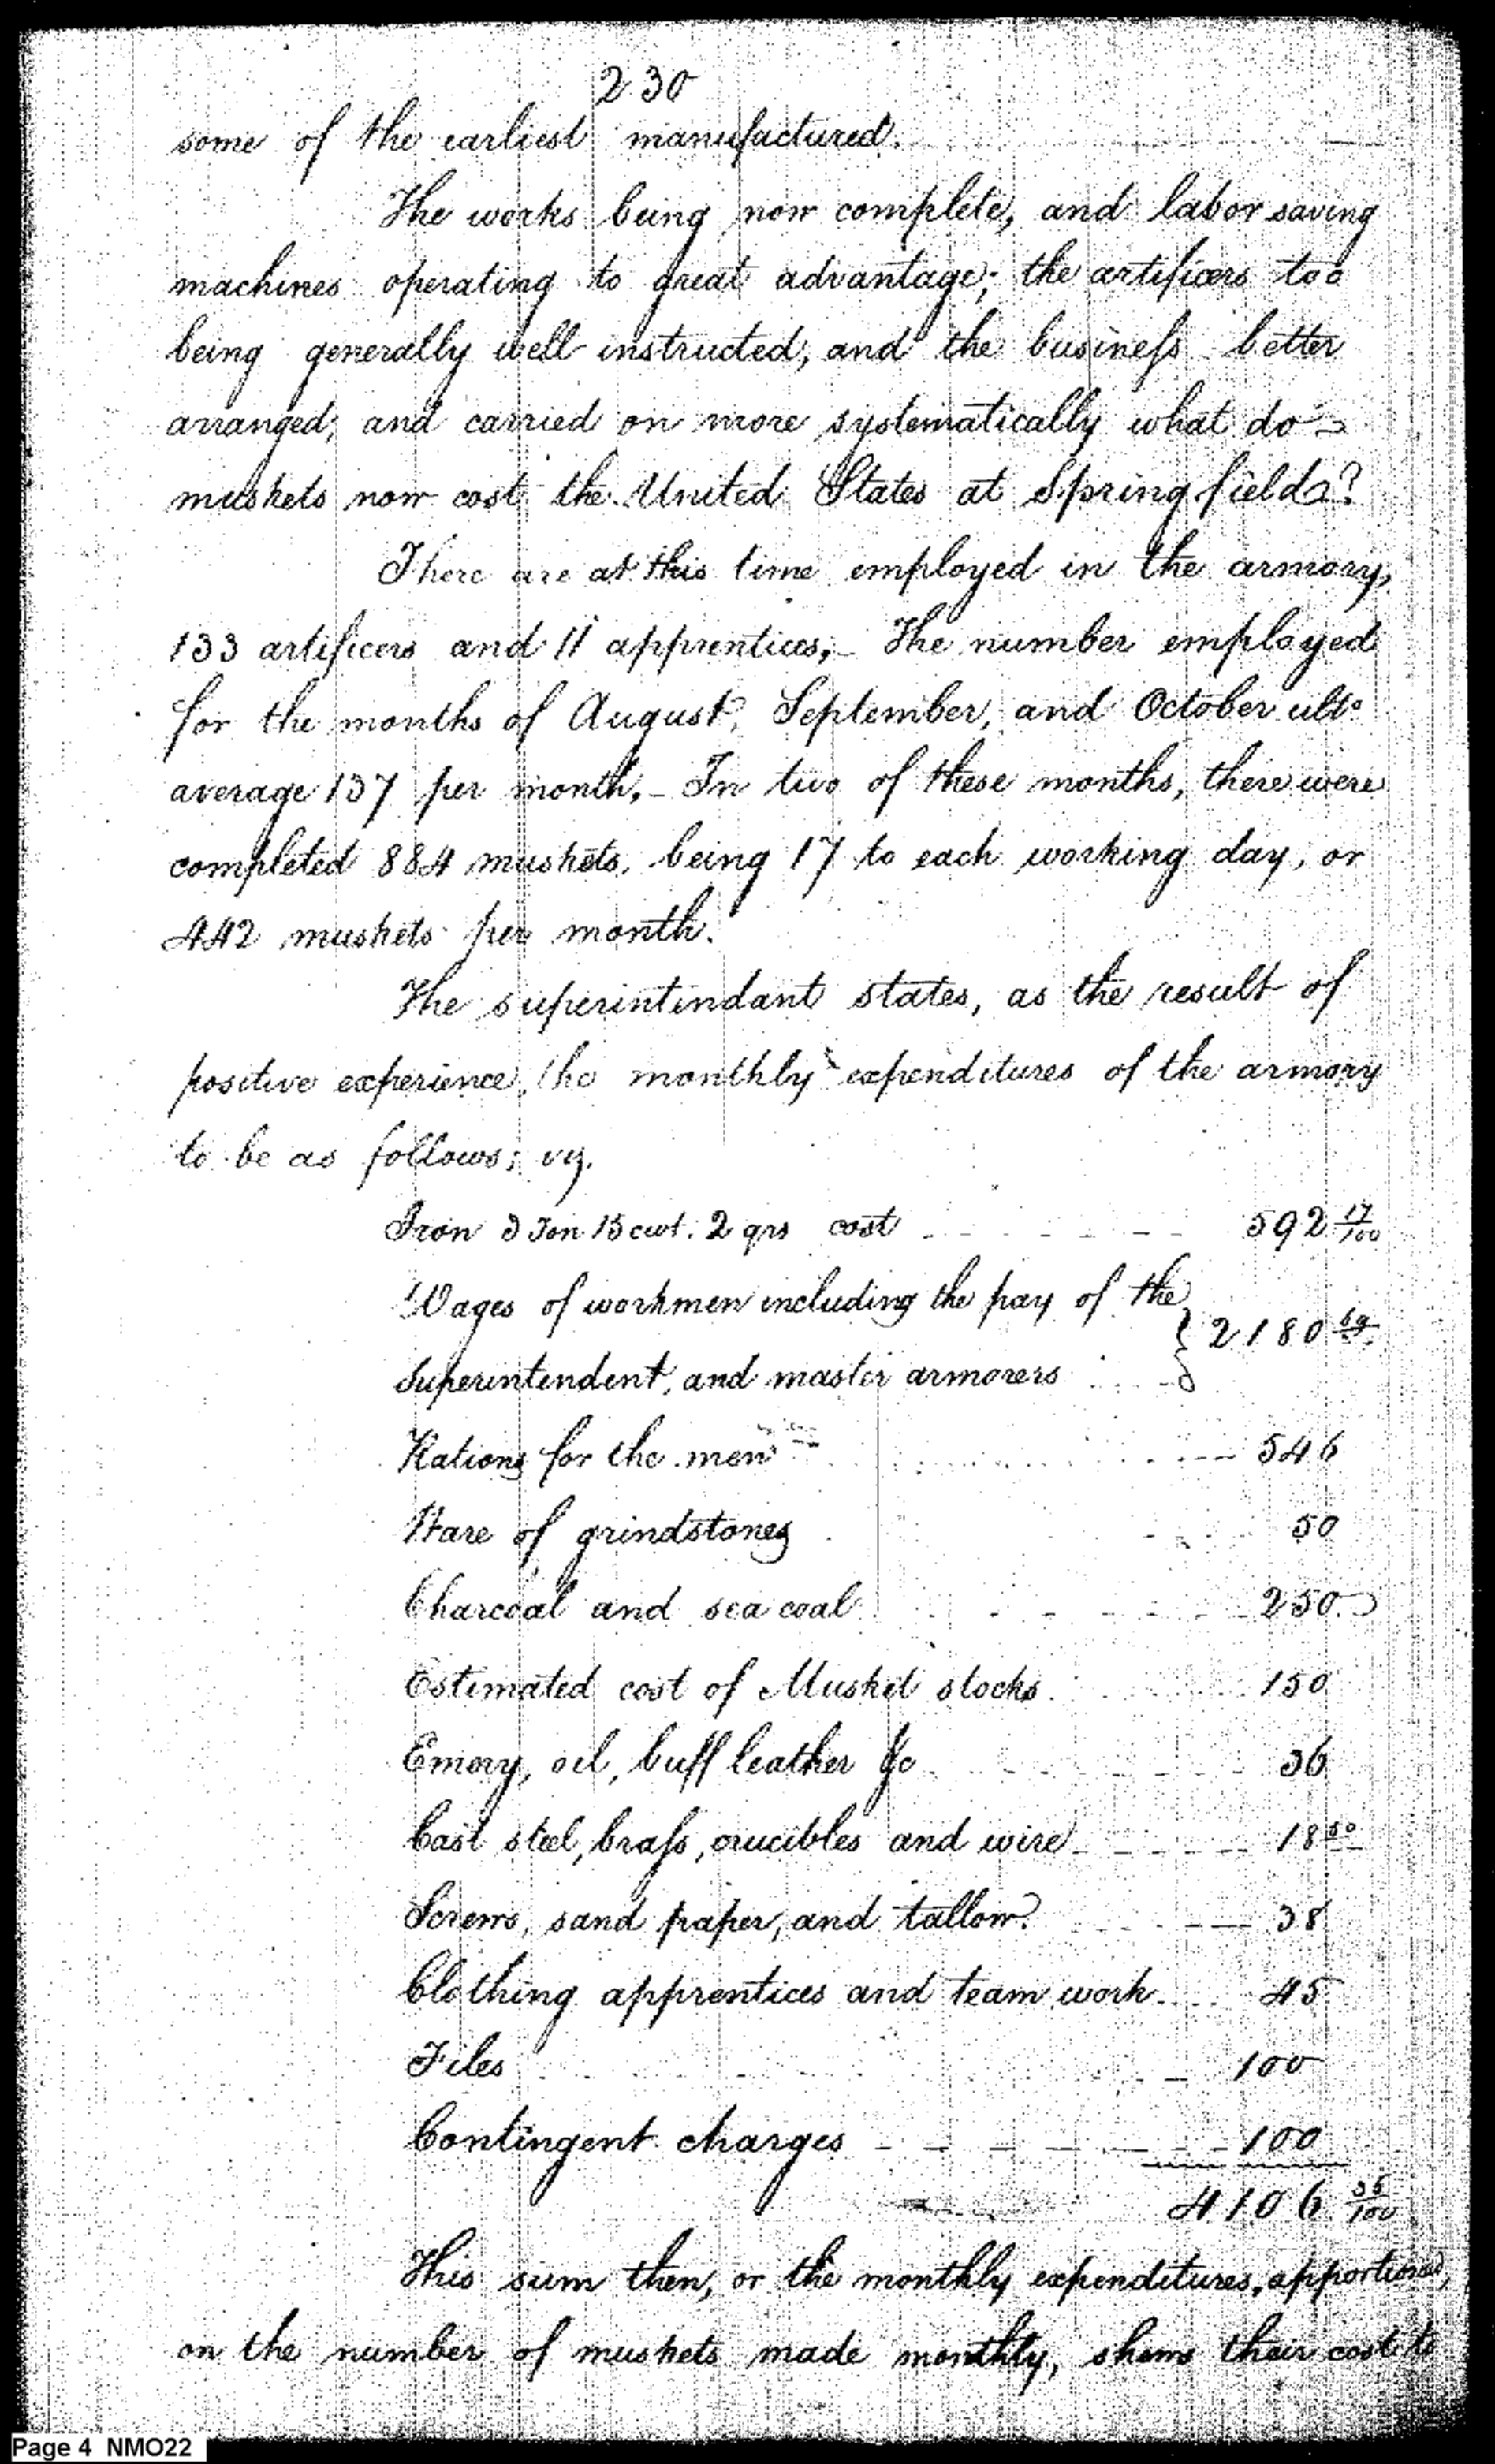 230
some of the earliest manufactured.
The works being now complete, and labor saving
machines operating to great advantage; the artificers too
being generally well instructed, and the businefs better
arranged; and carried on more systematically what do
muskets now cost the United States at Springfield?
There are at this time employed in the armory,
133 artificers and 11 apprentices,- The number employed
for the months of August, September, and October ulto
average 137 per month.- In two of these months, there were
completed 884 muskets, being 17 to each working day, or
442 muskets per month.
The superintendant states, as the result of
positive experience, the monthly expenditures of the armory
to be as follows; viz.
Iron 3 Ton 15 cwt. 2 qrs cost 592 17/100
Wages of workmen including the pay of the
Superintendent, and master armorers } 2180 69
Rations for the men 546
Ware of grindstones 50
Charcoal and sea coal 250
Estimated cost of Musket stocks 150
Emory, oil, buff leather &c 36
Cast steel, brafs, crucibles and wire 18 50
Screws, sand paper, and tallow 38
Clothing apprentices and team work 45
Files 100
Contingent charges 100
4106 36/100
This sum then, or the monthly expenditures, apportioned,
on the number of muskets made monthly, shews their cost to
Page 4 NMO22